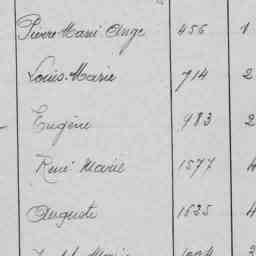 Pierre Marie Ange 456 1
Louis-Marie 714 2
Eugène 983 2
René Marie 1577 4
Auguste 1635 4
Marie